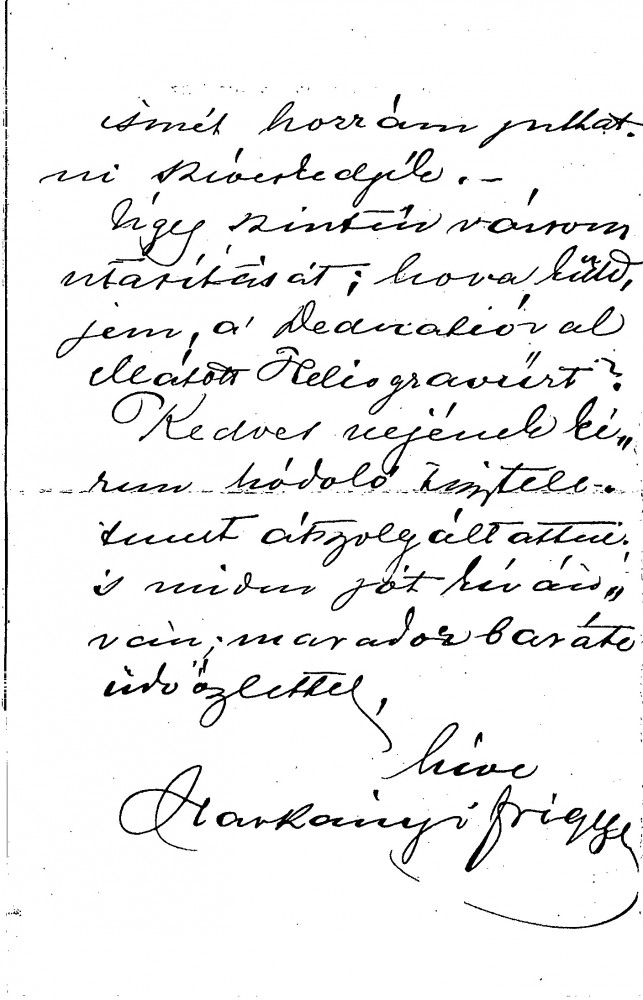 ismét hozzám juttat-
ni szíveskedjék. —
Úgy szintén várom
utasítását; hova küld,
jem, a' Dedicatióval
ellátott Heliogravürt?
Kedves nejének ké„
rem hódoló tisztele-
temet átszolgáltatni.
és minden jót kíván„
ván; maradok baráti
üdvözlettel,
híve
Harkányi Frigyes